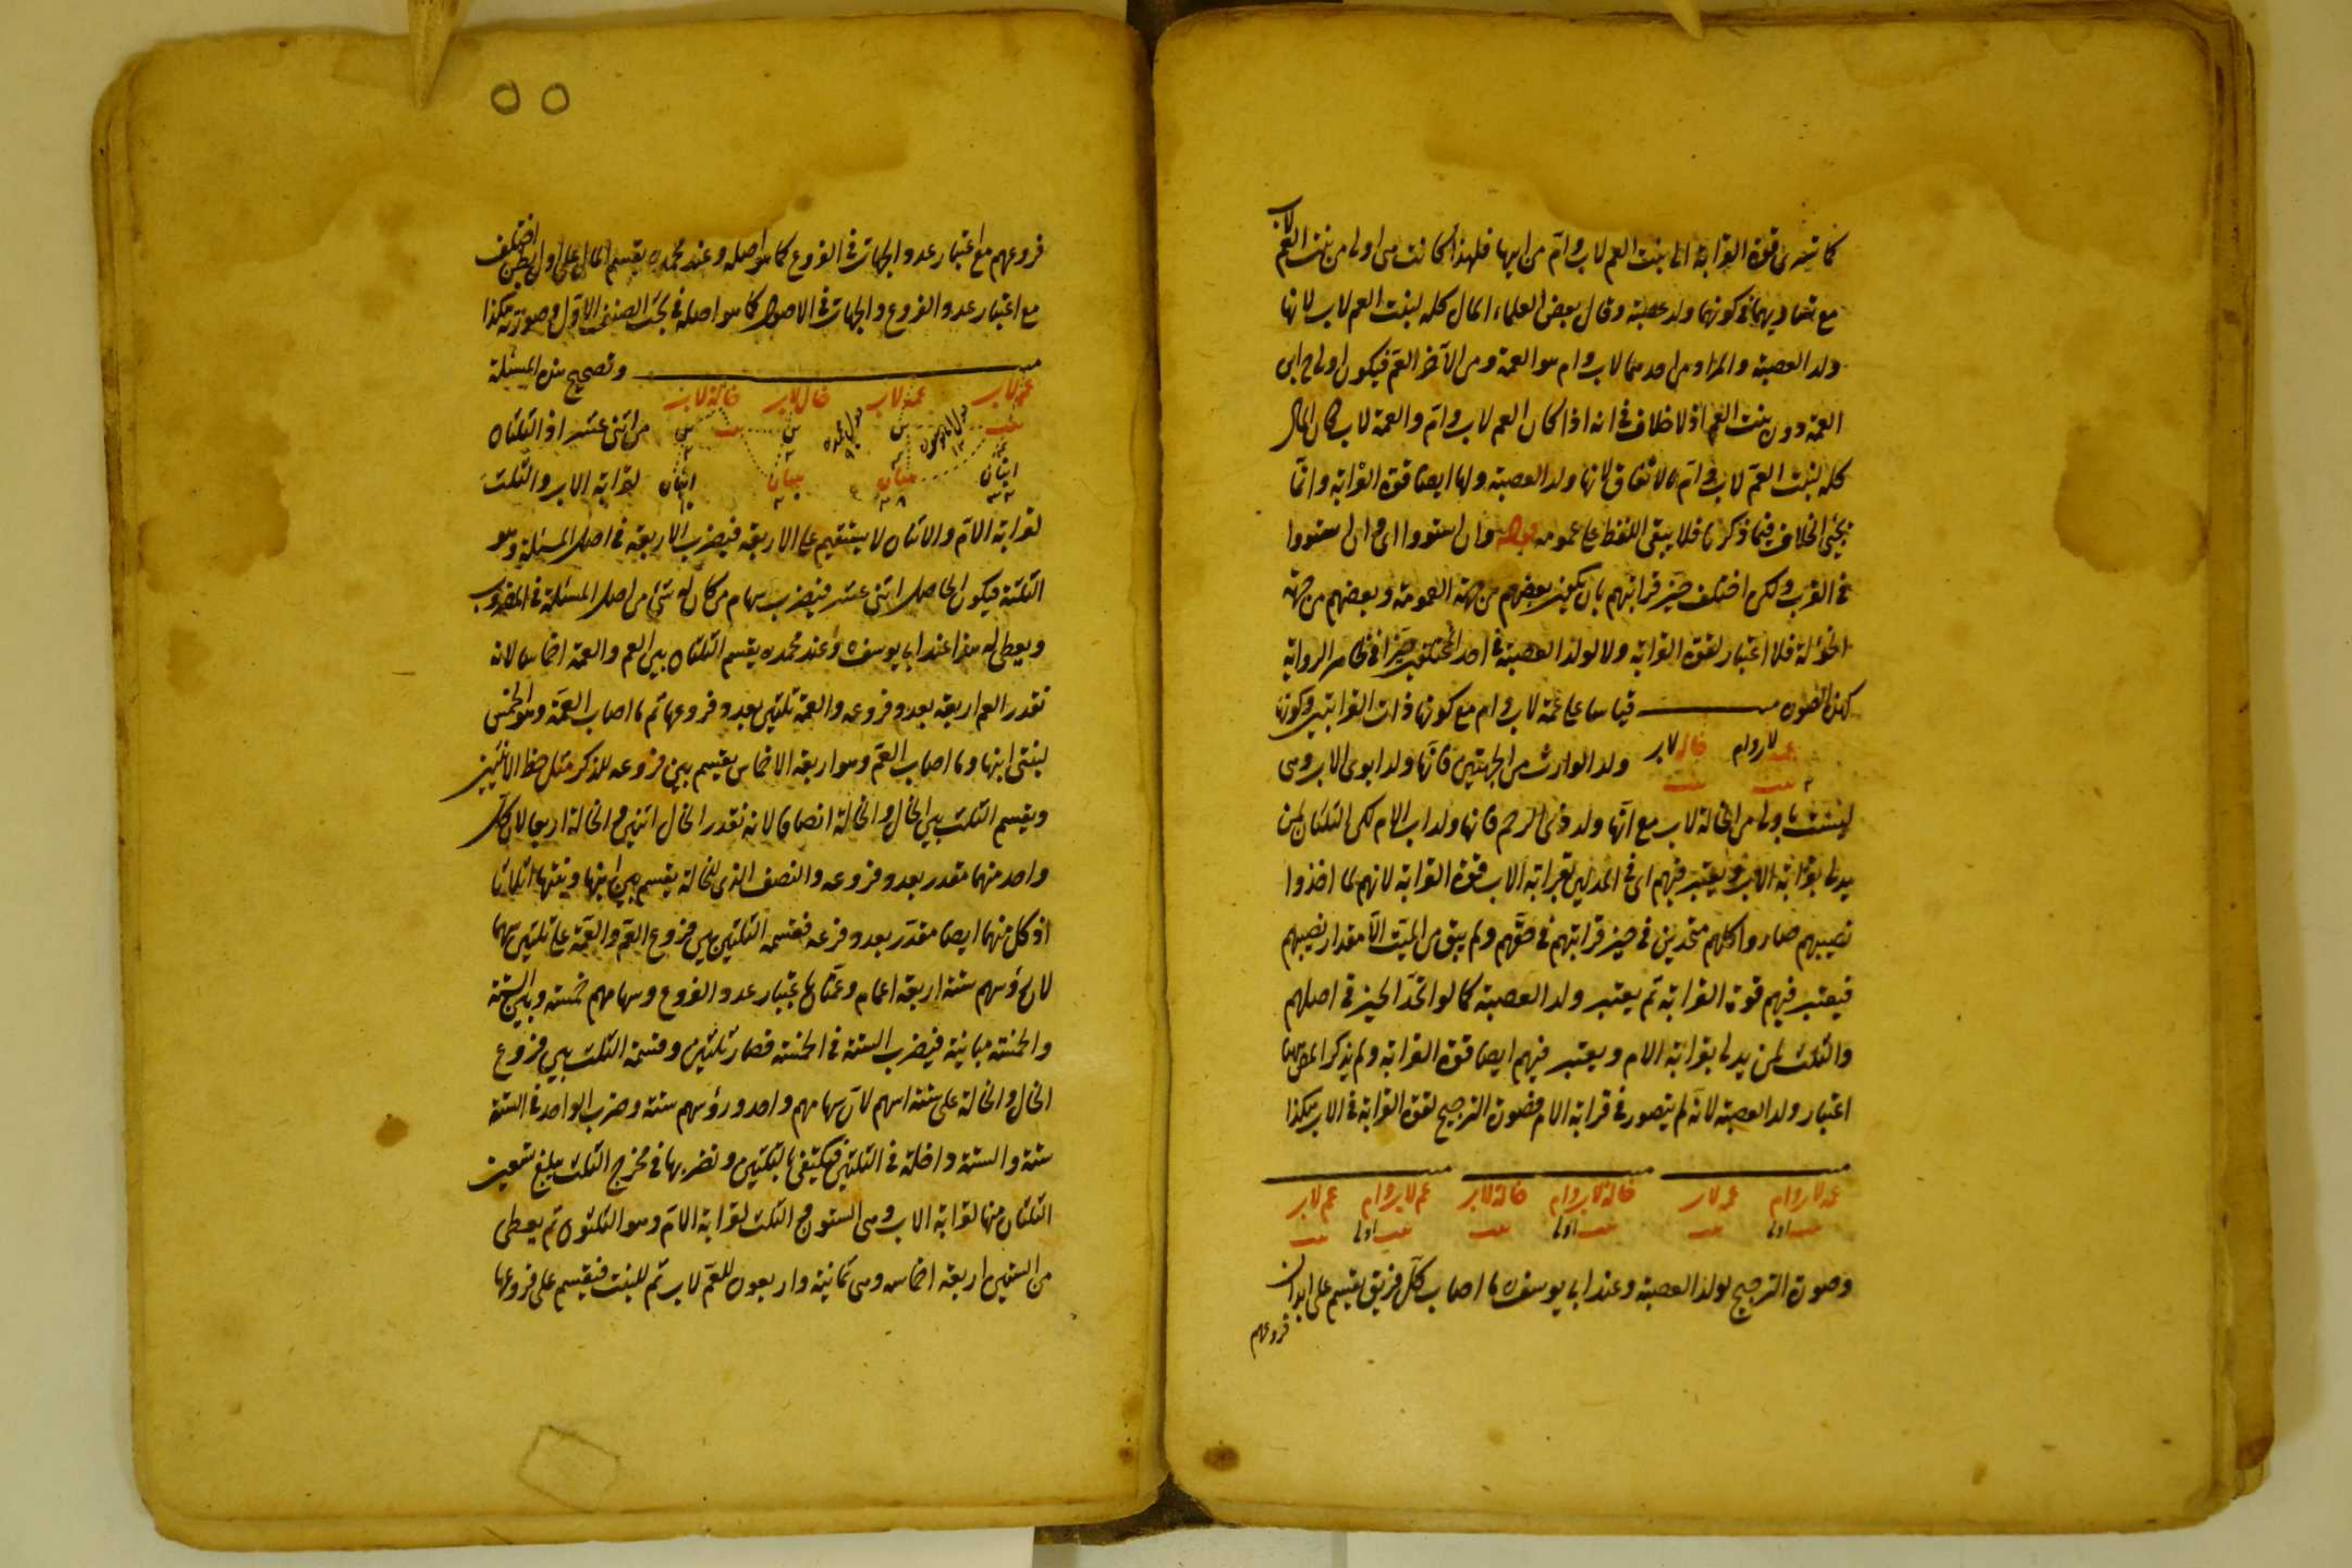 كما تسري قوة القرابة الى بنت العم لاب وام من ابيها فلهذا كانت هي اولى من بنت العم لاب
مع تساويهما في كونهما ولد عصبة وقال بعض العلماء المال كله لبنت العم لاب لانها
ولد العصبة والمراد من احدهما لاب وام هو العمة ومن الآخر العم فيكون اولاد ابن
العمة دون بنت العم اذ لا خلاف في انه اذا كان العم لاب وام والعمة لاب كان المال
كله لبنت العم لاب وام بالاتفاق لانها ولد العصبة ولها ايضا قوة القرابة وانما
يجئ الخلاف فيما ذكرنا فلا يبقى اللفظ على عمومه قوله وان استووا اي وان استووا
في القرب ولكن اختلف حيز قرابتهم بان يكون بعضهم من جهة العمومة وبعضهم من جهة
الخؤلة فلا اعتبار لقوة القرابة ولا لولد العصبة في احد المختلفين حيزا في ظاهر الرواية
كهذه الصورة قياسا على عمة لاب وام مع كونها ذات القرابتين وكونها
عمة لاب وام خالة لاب ولد الوارث من الجهتين فانها ولد ابوي الاب وهي
بنت بنت
ليست باولى من الخالة لاب مع انها ولد ذي الرحم فانها ولد اب الام لكن الثلثان لمن
يدلي بقرابة الاب ويعتبر فيهم اي في المدلين بقرابة الاب قوة القرابة لانهم لما اخذوا
نصيبهم صاروا كلهم متحدين في حيز قرابتهم في حقهم ولم يبق من الميت الا مقدار نصيبهم
فيعتبر فيهم قوة القرابة ثم يعتبر ولد العصبة كما لو اتحد الحيز في اصلهم
والثلث لمن يدلي بقرابة الام ويعتبر فيهم ايضا قوة القرابة ولم يذكر المص ههنا
اعتبار ولد العصبة لانه لم يتصور في قرابة الام فصورة الترجيح لقوة القرابة في الاب هكذا
عمة لاب وام عمة لاب خالة لاب وام خالة لاب عم لاب وام عم لاب
بنت اولى بنت بنت اولى بنت بنت اولى بنت
وصورة الترجيح لولد العصبة وعند ابي يوسف ره ما اصاب كل فريق يقسم على ابدان
فروعهم
٥٥
فروعهم مع اعتبار عدد الجهات في الفروع كما هو اصله وعند محمد ره يقسم المال على اول بطن اختلف
مع اعتبار عدد الفروع والجهات في الاصول كما هو اصله في بحث الصنف الاول وصورته هكذا
وتصحيح هذه المسئلة
عم لاب عمة لاب خال لاب خالة لاب
من اثنى عشر اذ الثلثان
ابنان بنتان بنتان ابنان لقرابة الاب والثلث
لقرابة الام والاثنان لا يستقيم على الاربعة فيضرب الاربعة في اصل المسئلة وهو
الثلثة فيكون الحاصل اثنى عشر فيضرب سهام من كان له شئ من اصل المسئلة في المضروب
ويعطى له هذا عند ابي يوسف ره وعند محمد ره يقسم الثلثان بين العم والعمة اخماسا لانه
تقدر العم اربعة بعدد فروعه والعمة ثلثين بعدد فروعها ثم ما اصاب العمة وهو الخمس
لبنتي ابنها وما اصاب العم وهو اربعة الاخماس يقسم بين فروعه للذكر مثل حظ الانثيين
ويقسم الثلث بين الخال والخالة انصافا لانه تقدر الخال اثنين والخالة اربعا لان كل
واحد منهما مقدر بعدد فروعه والنصف الذي للخالة يقسم بين ابنها وبنتها اثلاثا
اذ كل منهما ايضا مقدر بعدد فرعه فقسمة الثلثين بين فروع العم والعمة على ثلثين سهما
لان رؤسهم ستة اربعة اعمام وعمتان باعتبار عدد الفروع وسهامهم خمسة وبين الستة
والخمسة مباينة فيضرب الستة في الخمسة فصار ثلثين وقسمة الثلث بين فروع
الخال والخالة على ستة اسهم لان سهامهم واحد ورؤسهم ستة وضرب الواحد في الستة
ستة والستة داخلة في الثلثين فيكتفى بالثلثين ونضربها في مخرج الثلث يبلغ تسعين
الثلثان منها لقرابة الاب وهي الستون والثلث لقرابة الام وهو الثلثون ثم يعطى
من الستين اربعة اخماس وهي ثمانية واربعون للعم لاب ثم للبنت فيقسم على فروعها